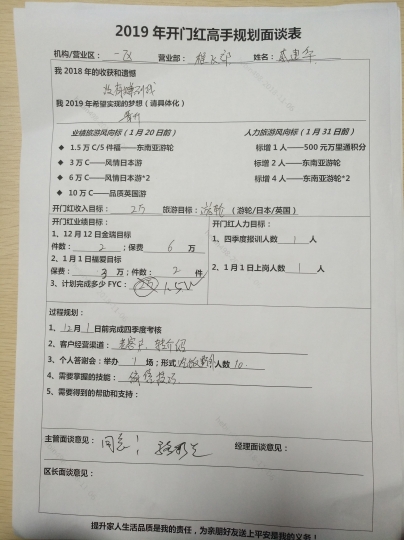 2019年开门红高手规划面谈表
机构/营业区：一区 营业部： 姓名：
我2018年的收获和遗憾
没有赚到钱
我2019年希望实现的梦想（请具体化）
晋升
业绩旅游风向标（1月20日前） 人力旅游风向标（1月31日前）
◆ 1.5万C/5件福——东南亚游轮 标增1人——500元万里通积分
◆ 3万C——风情日本游 标增2人——东南亚游轮
◆ 6万C——风情日本游*2 标增4人——东南亚游轮*2
◆ 10万C——品质英国游
开门红收入目标：25 旅游目标：游轮（游轮/日本/英国）
开门红业绩目标： 开门红人力目标：
1、12月12日金瑞目标 1、四季度报训人数 1 人
件数：2；保费 6 万
2、1月1日福爱目标 2、1月1日上岗人数 1 人
保费：3万；件数：2 件
3、计划完成多少FYC： 1.5W
过程规划：
1、12月1日前完成四季度考核
2、客户经营渠道：老客户，转介绍
3、个人答谢会：举办 1 场；形式 人数 10
4、需要掌握的技能：
5、需要得到的帮助和支持：
主管面谈意见：同意！ 经理面谈意见：
区长面谈意见：
提升家人生活品质是我的责任，为亲朋好友送上平安是我的义务！